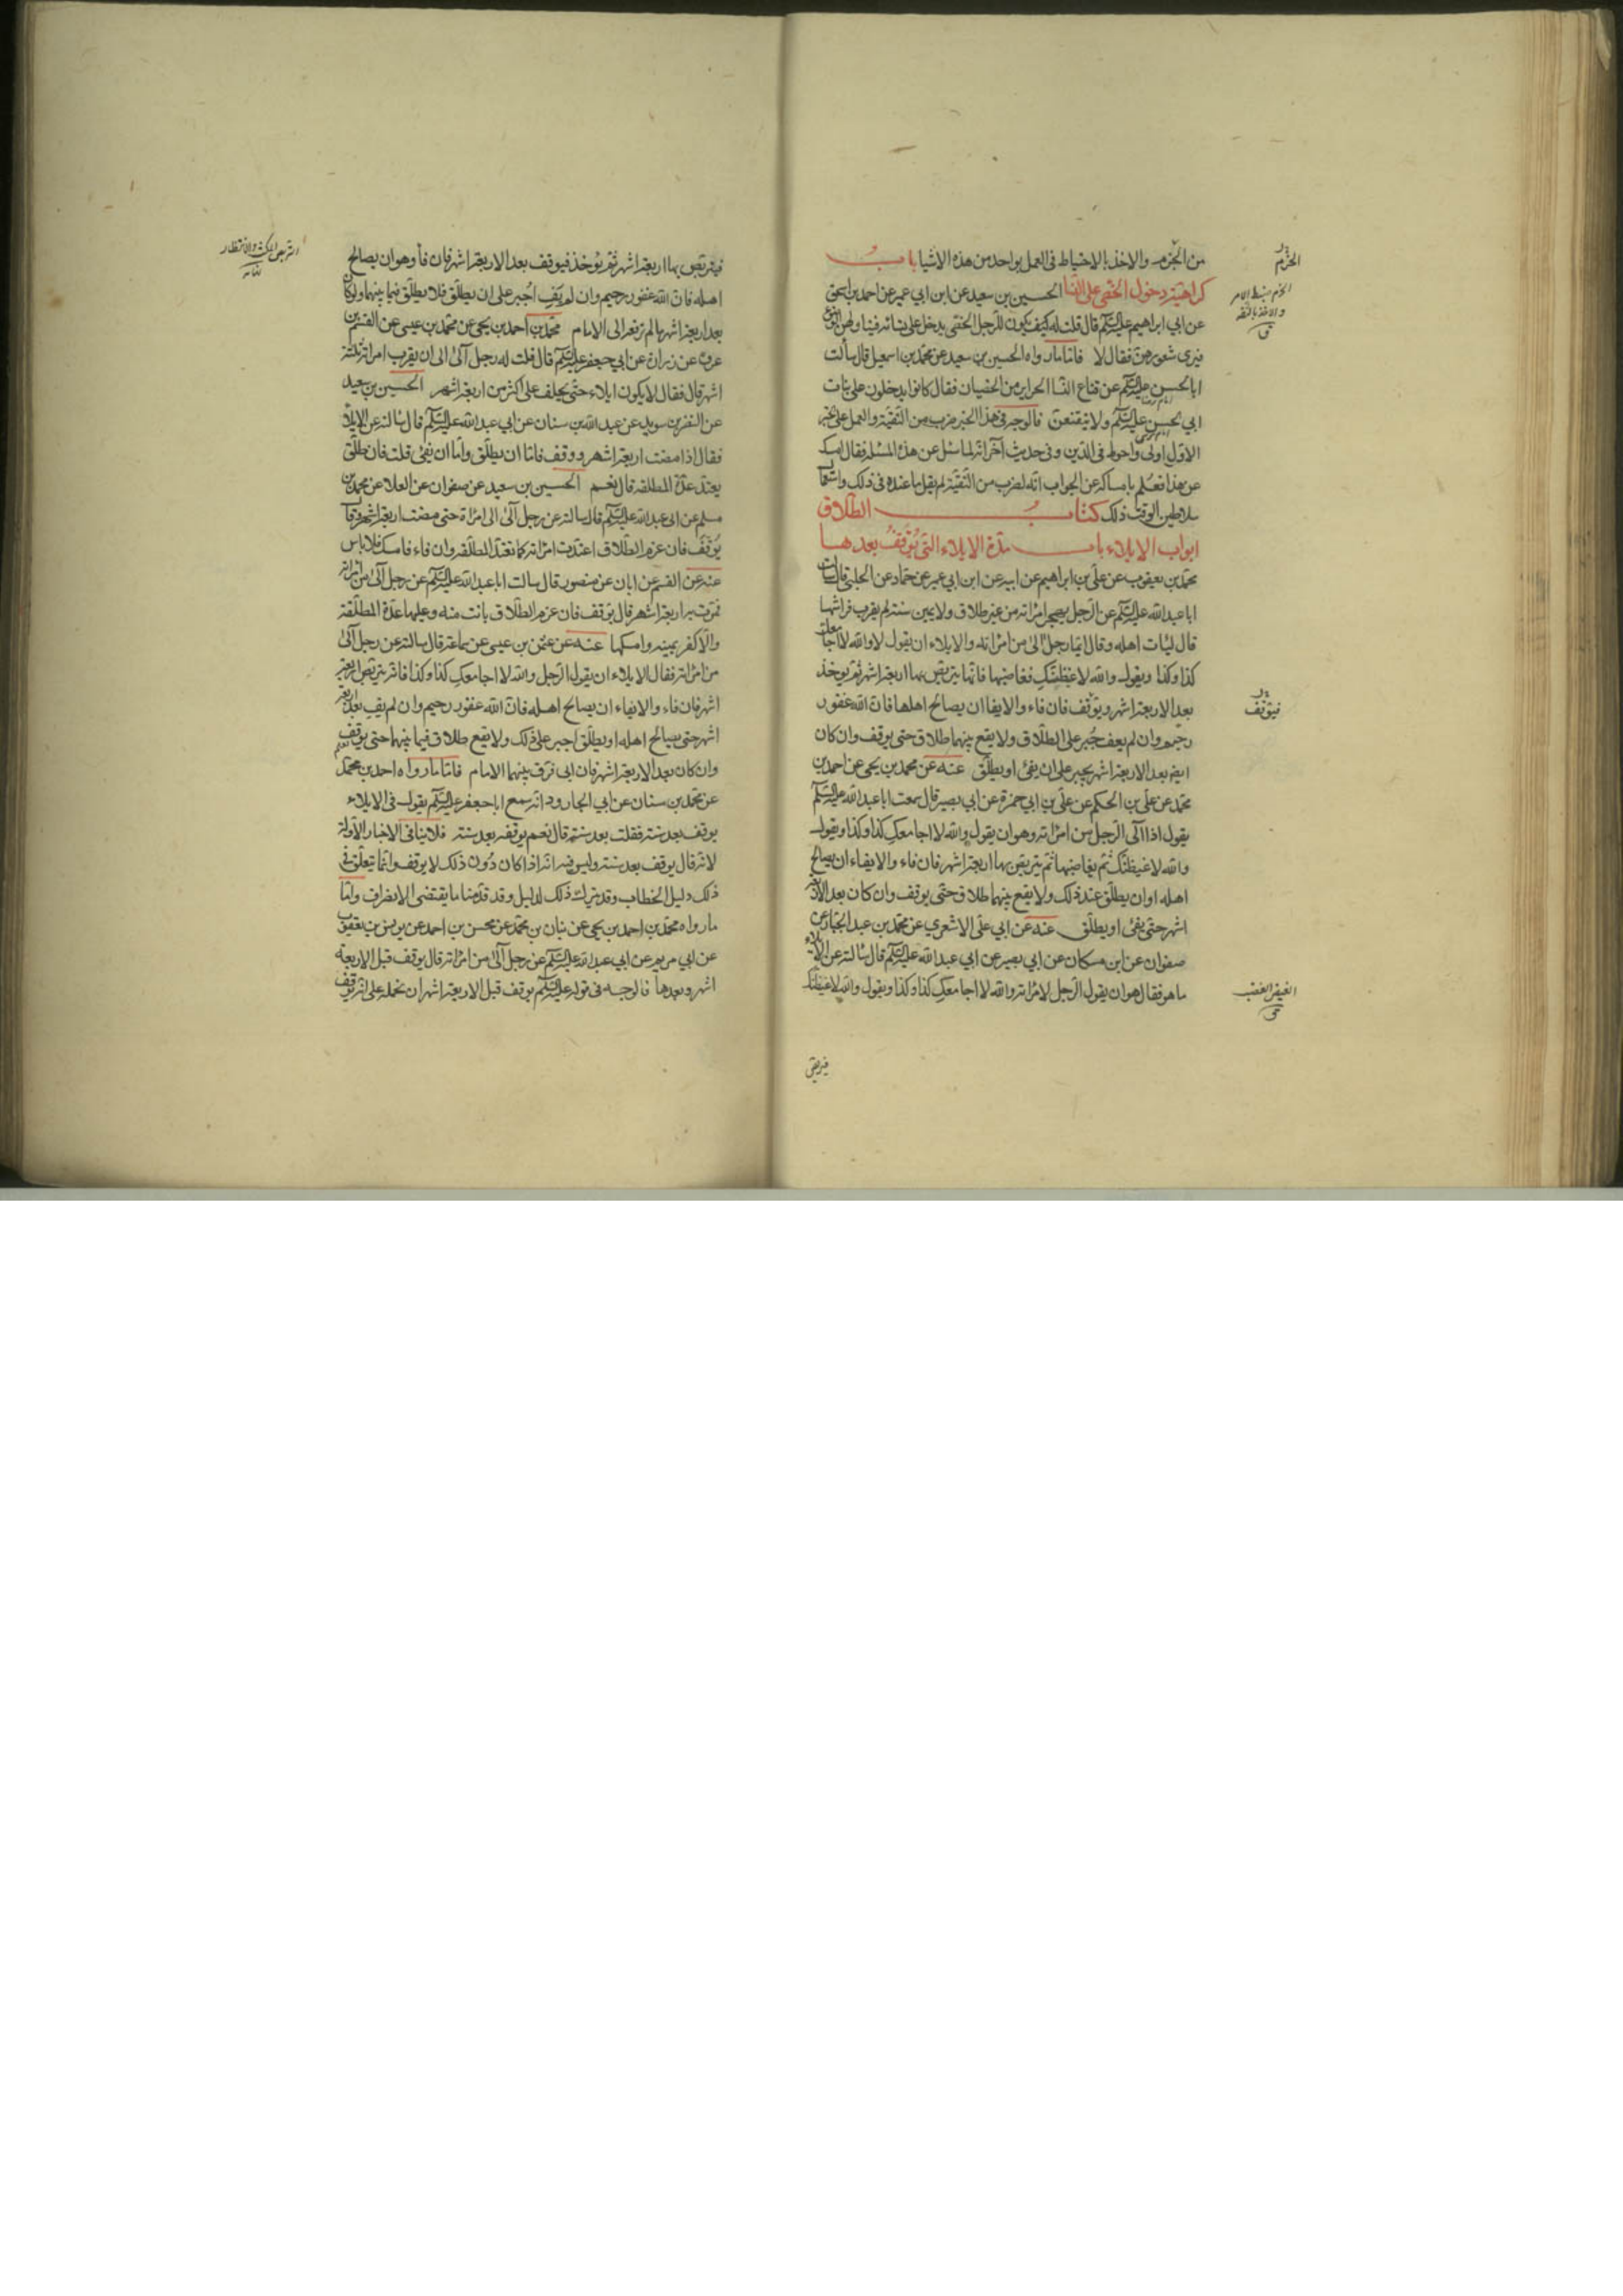 من الجزم والاخذ بالاحتياط فى العمل بواحد من هذه الاشيا باب
كراهية دخول الخصى على النسا الحسين بن سعيد عن ابن ابي عمير عن احمد بن اسحق
عن ابي ابراهيم عليه السلم قال قلت له كيف يكون للرجل الخصى يدخل على نسائه فيناولهن الوضوء
فيرى شعورهن فقال لا فاما ما رواه الحسين بن سعيد عن محمد بن اسمعيل قال سألت
ابا الحسن عليه السلم عن قناع النسا الحراير من الخصيان فقال كانوا يدخلون على بنات
ابي الحسن عليه السلم ولا يتقنعن فالوجه فى هذا الخبر ضرب من التقية والعمل على الخبر
الاول اولى واحوط فى الدين وفى حديث آخر انه لما سئل عن هذه المسئلة فقال امسك
عن هذا فعلم بامساكه عن الجواب انه لضرب من التقية لم يقل ما عنده فى ذلك واستعما
سلاطين الوقت ذلك كتاب الطلاق
ابواب الايلاء باب مدة الايلاء التى يوقف بعدها
محمد بن يعقوب عن على بن ابراهيم عن ابيه عن ابن ابي عمير عن حماد عن الحلبى قال سالت
ابا عبد الله عليه السلم عن الرجل يهجر امراته من غير طلاق ولا يمين سنة لم يقرب فراشها
قال ليأت اهله وقال ايما رجل الى من امراته والايلاء ان يقول لا والله لا اجامعك
كذا وكذا ويقول والله لاغيظنك فغاضبها فانما يتربص بها اربعة اشهر ثم يوخذ
بعد الاربعة اشهر ويوقف فان فاء والايفا ان يصالح اهلها فان الله غفور
رحيم وان لم يف جبر على الطلاق ولا يقع بينهما طلاق حتى يوقف وان كان
ايضا بعد الاربعة اشهر يجبر على ان يفئ او يطلق عنه عن محمد بن يحيى عن احمد بن
محمد عن على بن الحكم عن على بن ابي حمزة عن ابي بصير قال سمعت ابا عبد الله عليه السلم
يقول اذا آلى الرجل من امراته وهو ان يقول والله لا اجامعك كذا وكذا ويقول
والله لاغيظنك ثم يغاضبها ثم يتربص بها اربعة اشهر فان فاء والايفاء ان يصالح
اهله او ان يطلق عند ذلك ولا يقع بينهما طلاق حتى يوقف وان كان بعد الاربعة
اشهر حتى يفئ او يطلق عنه عن ابي على الاشعري عن محمد بن عبد الجبار عن
صفوان عن ابن مسكان عن ابي بصير عن ابي عبد الله عليه السلم قال سالته عن الايلاء
ما هو فقال هو ان يقول الرجل لامراته والله لا اجامعك كذا وكذا ويقول والله لاغيظنك
الحزم
الحزم ضبط الامر
والاخذ بالثقة
ق
فيوقف
الغيض الغضب
ق
فيتربص
فيتربص بها اربعة اشهر ثم يوخذ فيوقف بعد الاربعة اشهر فان فاء وهو ان يصالح
اهله فان الله غفور رحيم وان لم يف اجبر على ان يطلق فلا يطلق فيما بينهما ولو كان
بعد اربعة اشهر ما لم ترفعه الى الامام محمد بن احمد بن يحيى عن محمد بن عيسى عن القسم بن
عروة عن زرارة عن ابي جعفر عليه السلم قال قلت له رجل آلى الى ان يقرب امراته ثلثة
اشهر قال فقال لا يكون ايلاء حتى يحلف على اكثر من اربعة اشهر الحسين بن سعيد
عن النضر بن سويد عن عبد الله بن سنان عن ابي عبد الله عليه السلم قال سالته عن الايلاء
فقال اذا مضت اربعة اشهر ووقف فاما ان يطلق واما ان يفئ قلت فان طلق
يعتد عدة المطلقة قال نعم الحسين بن سعيد عن صفوان عن العلا عن محمد بن
مسلم عن ابي عبد الله عليه السلم قال سالته عن رجل آلى الى امراة حتى مضت اربعة اشهر قال
يوقف فان عزم الطلاق اعتدت امراته كما تعتد المطلقة وان فاء فامسك فلا باس
عنه عن القسم عن ابان عن منصور قال سالت ابا عبد الله عليه السلم عن رجل آلى من امراته
فمرت به اربعة اشهر قال يوقف فان عزم الطلاق بانت منه وعليها عدة المطلقة
والا كفر يمينه وامسكها عنه عن عثمن بن عيسى عن سماعة قال سالته عن رجل آلى
من امراته فقال الايلاء ان يقول الرجل والله لا اجامعك كذا وكذا فانه يتربص اربعة
اشهر فان فاء والايفاء ان يصالح اهله فان الله غفور رحيم وان لم يف بعد اربعة
اشهر حتى يصالح اهله او يطلق اجبر على ذلك ولا يقع طلاق فيما بينهما حتى يوقف
وان كان بعد الاربعة اشهر فان ابى فرق بينهما الامام فاما ما رواه احمد بن محمد
عن محمد بن سنان عن ابي الجارود انه سمع ابا جعفر عليه السلم يقول فى الايلاء
يوقف بعد سنة فقلت بعد سنة قال نعم يوقف بعد سنة فلا ينافى الاخبار الاولة
لانه قال يوقف بعد سنة وليس فيه انه اذا كان دون ذلك لا يوقف وانما يتعلق فى
ذلك دليل الخطاب وقد يترك ذلك لدليل وقد قدمنا ما يقتضى الانصراف واما
ما رواه محمد بن احمد بن يحيى عن بنان بن محمد عن محسن بن احمد عن يونس بن يعقوب
عن ابي مريم عن ابي عبد الله عليه السلم عن رجل آلى من امراته قال يوقف قبل الاربعة
اشهر وبعدها فالوجه فى قوله عليه السلم يوقف قبل الاربعة اشهر ان نحمله على انه يوقف
التربص المكث والانتظار
نهايه